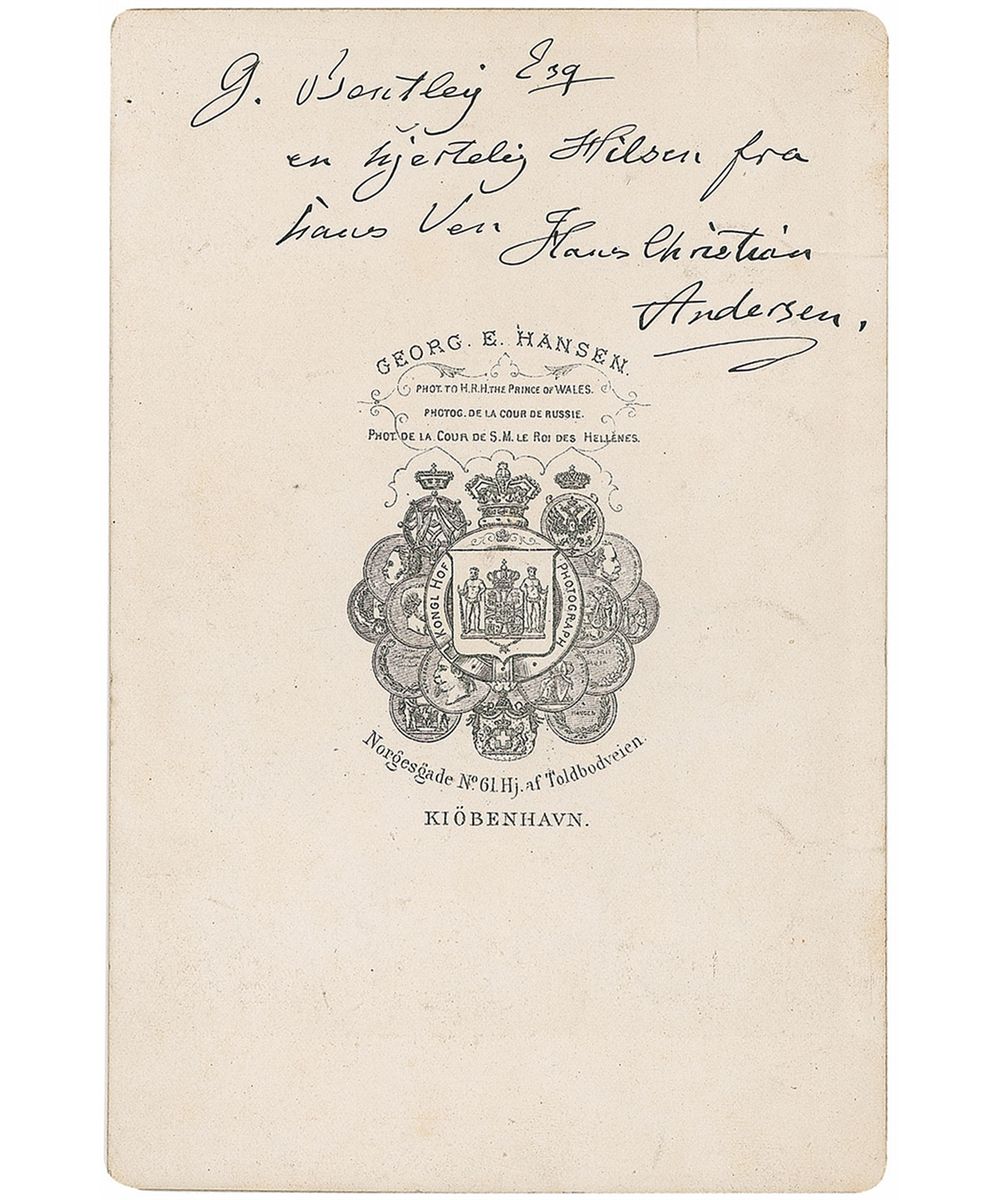 G. Bentley Esq
en hjertelig Hilsen fra
hans Ven Hans Christian
Andersen.
GEORG. E. HANSEN.
PHOT. TO H.R.H. THE PRINCE OF WALES.
PHOTOG. DE LA COUR DE RUSSIE.
PHOT. DE LA COUR DE S.M. LE ROI DES HELLÈNES.
KONGL HOF PHOTOGRAPH
Norgesgade No 61. Hj. af Toldbodveien.
KIÖBENHAVN.